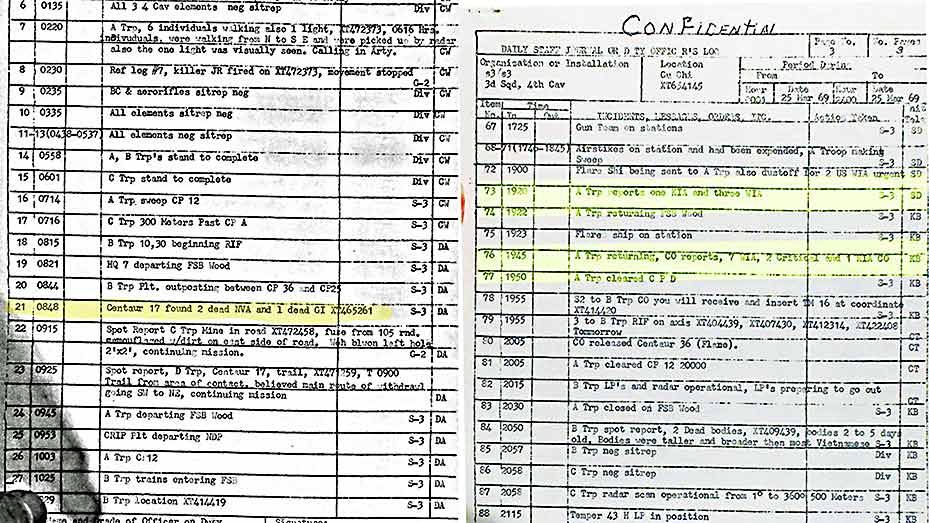 6 0135 All 3 4 Cav elements neg sitrep Div CW
7 0220 A Trp, 6 individuals walking also 1 light, XT472373, 0616 Hrs.
individuals, were walking from N to S E and were picked up by radar
also the one light was visually seen. Calling in Arty. CW
8 0230 Ref log #7, killer JR fired on XT472373, movement stopped
G-2 CW
9 0235 BC & aerorifles sitrep neg Div CW
10 0335 All elements sitrep neg Div CW
11-13(0438-0537) All elements neg sitrep Div CW
14 0558 A, B Trp's stand to complete Div CW
15 0601 C Trp stand to complete Div CW
16 0714 A Trp sweep CP 12 S-3 CW
17 0716 C Trp 300 Meters Past CP A S-3 CW
18 0815 B Trp 10,30 beginning RIF S-3 DA
19 0821 HQ 7 departing FSB Wood S-3 DA
20 0844 B Trp Plt. outposting between CP 36 and CP25 S-3 DA
21 0848 Centaur 17 found 2 dead NVA and 1 dead GI XT465261 S-3 DA
22 0915 Spot Report C Trp Mine in road XT472458, fuse from 105 rnd.
camouflaged w/dirt on east side of road. Weh blwon left hole
2'x2', continuing mission. G-2 DA
23 0925 Spot report, D Trp, Centaur 17, trail, T 0900
Trail from area of contact, believed main route of withdrawl
going SW to NE, continuing mission DA
24 0945 A Trp departing FSB Wood S-3 DA
25 0953 CRIP Plt departing NDP S-3 DA
26 1003 A Trp C:12 S-3 DA
27 1025 B Trp trains entering FSB S-3 DA
B Trp location XT414419 S-3 DA
and Grade of Officer on Duty Signature:
CONFIDENTIAL
DAILY STAFF JOURNAL OR DUTY OFFICER'S LOG Page No. 3 No. Pages 3
Organization or Installation Location Period During
s3/s3 Cu Chi From To
3d Sqd, 4th Cav XT654145 Hour Date Hour Date
0001 25 Mar 69 2400 25 Mar 69
Item Time
No. In Out INCIDENTS, MESSAGES, ORDERS, ETC. Action Taken
67 1725 Gun Team on stations S-3 SD
68-71(1746-1845) Airstixes on station and had been expended, A Troop making
Sweep S-3 SD
72 1900 Flare Shi being sent to A Trp also dustoff for 2 US WIA urgent SD
73 1920 A Trp reports one KIA and three WIA S-3 SD
74 1922 A Trp returning FSB Wood S-3 KB
75 1923 Flare ship on station S-3 KB
76 1945 A Trp returning, CO reports, 7 WIA, 2 Critical and 1 KIA CO KB
77 1950 A Trp cleared C P D S-3 KB
78 1955 S2 to B Trp CO you will receive and insert TM 16 at coordinate
XT414420 CT
79 1955 3 to B Trp RIF on axis XT404439, XT407430, XT412314, XT422408
Tomorrow CT
80 2005 CO released Centaur 36 (Flame). CT
81 2005 A Trp cleared CP 12 20000 CT
82 2015 B Trp LP's and radar operational, LP's preparing to go out
CT
83 2030 A Trp closed on FSB Wood S-3 KB
84 2050 B Trp spot report, 2 Dead bodies, XT409439, bodies 2 to 5 days
old, Bodies were taller and broader then most Vietnamese S-3 KB
85 2057 B Trp neg sitrep Div KB
86 2058 C Trp neg sitrep Div KB
87 2058 C Trp radar scan operational from 1° to 360° 500 Meters S-3 KB
88 2115 Temper 43 H LP in position S-3 KB